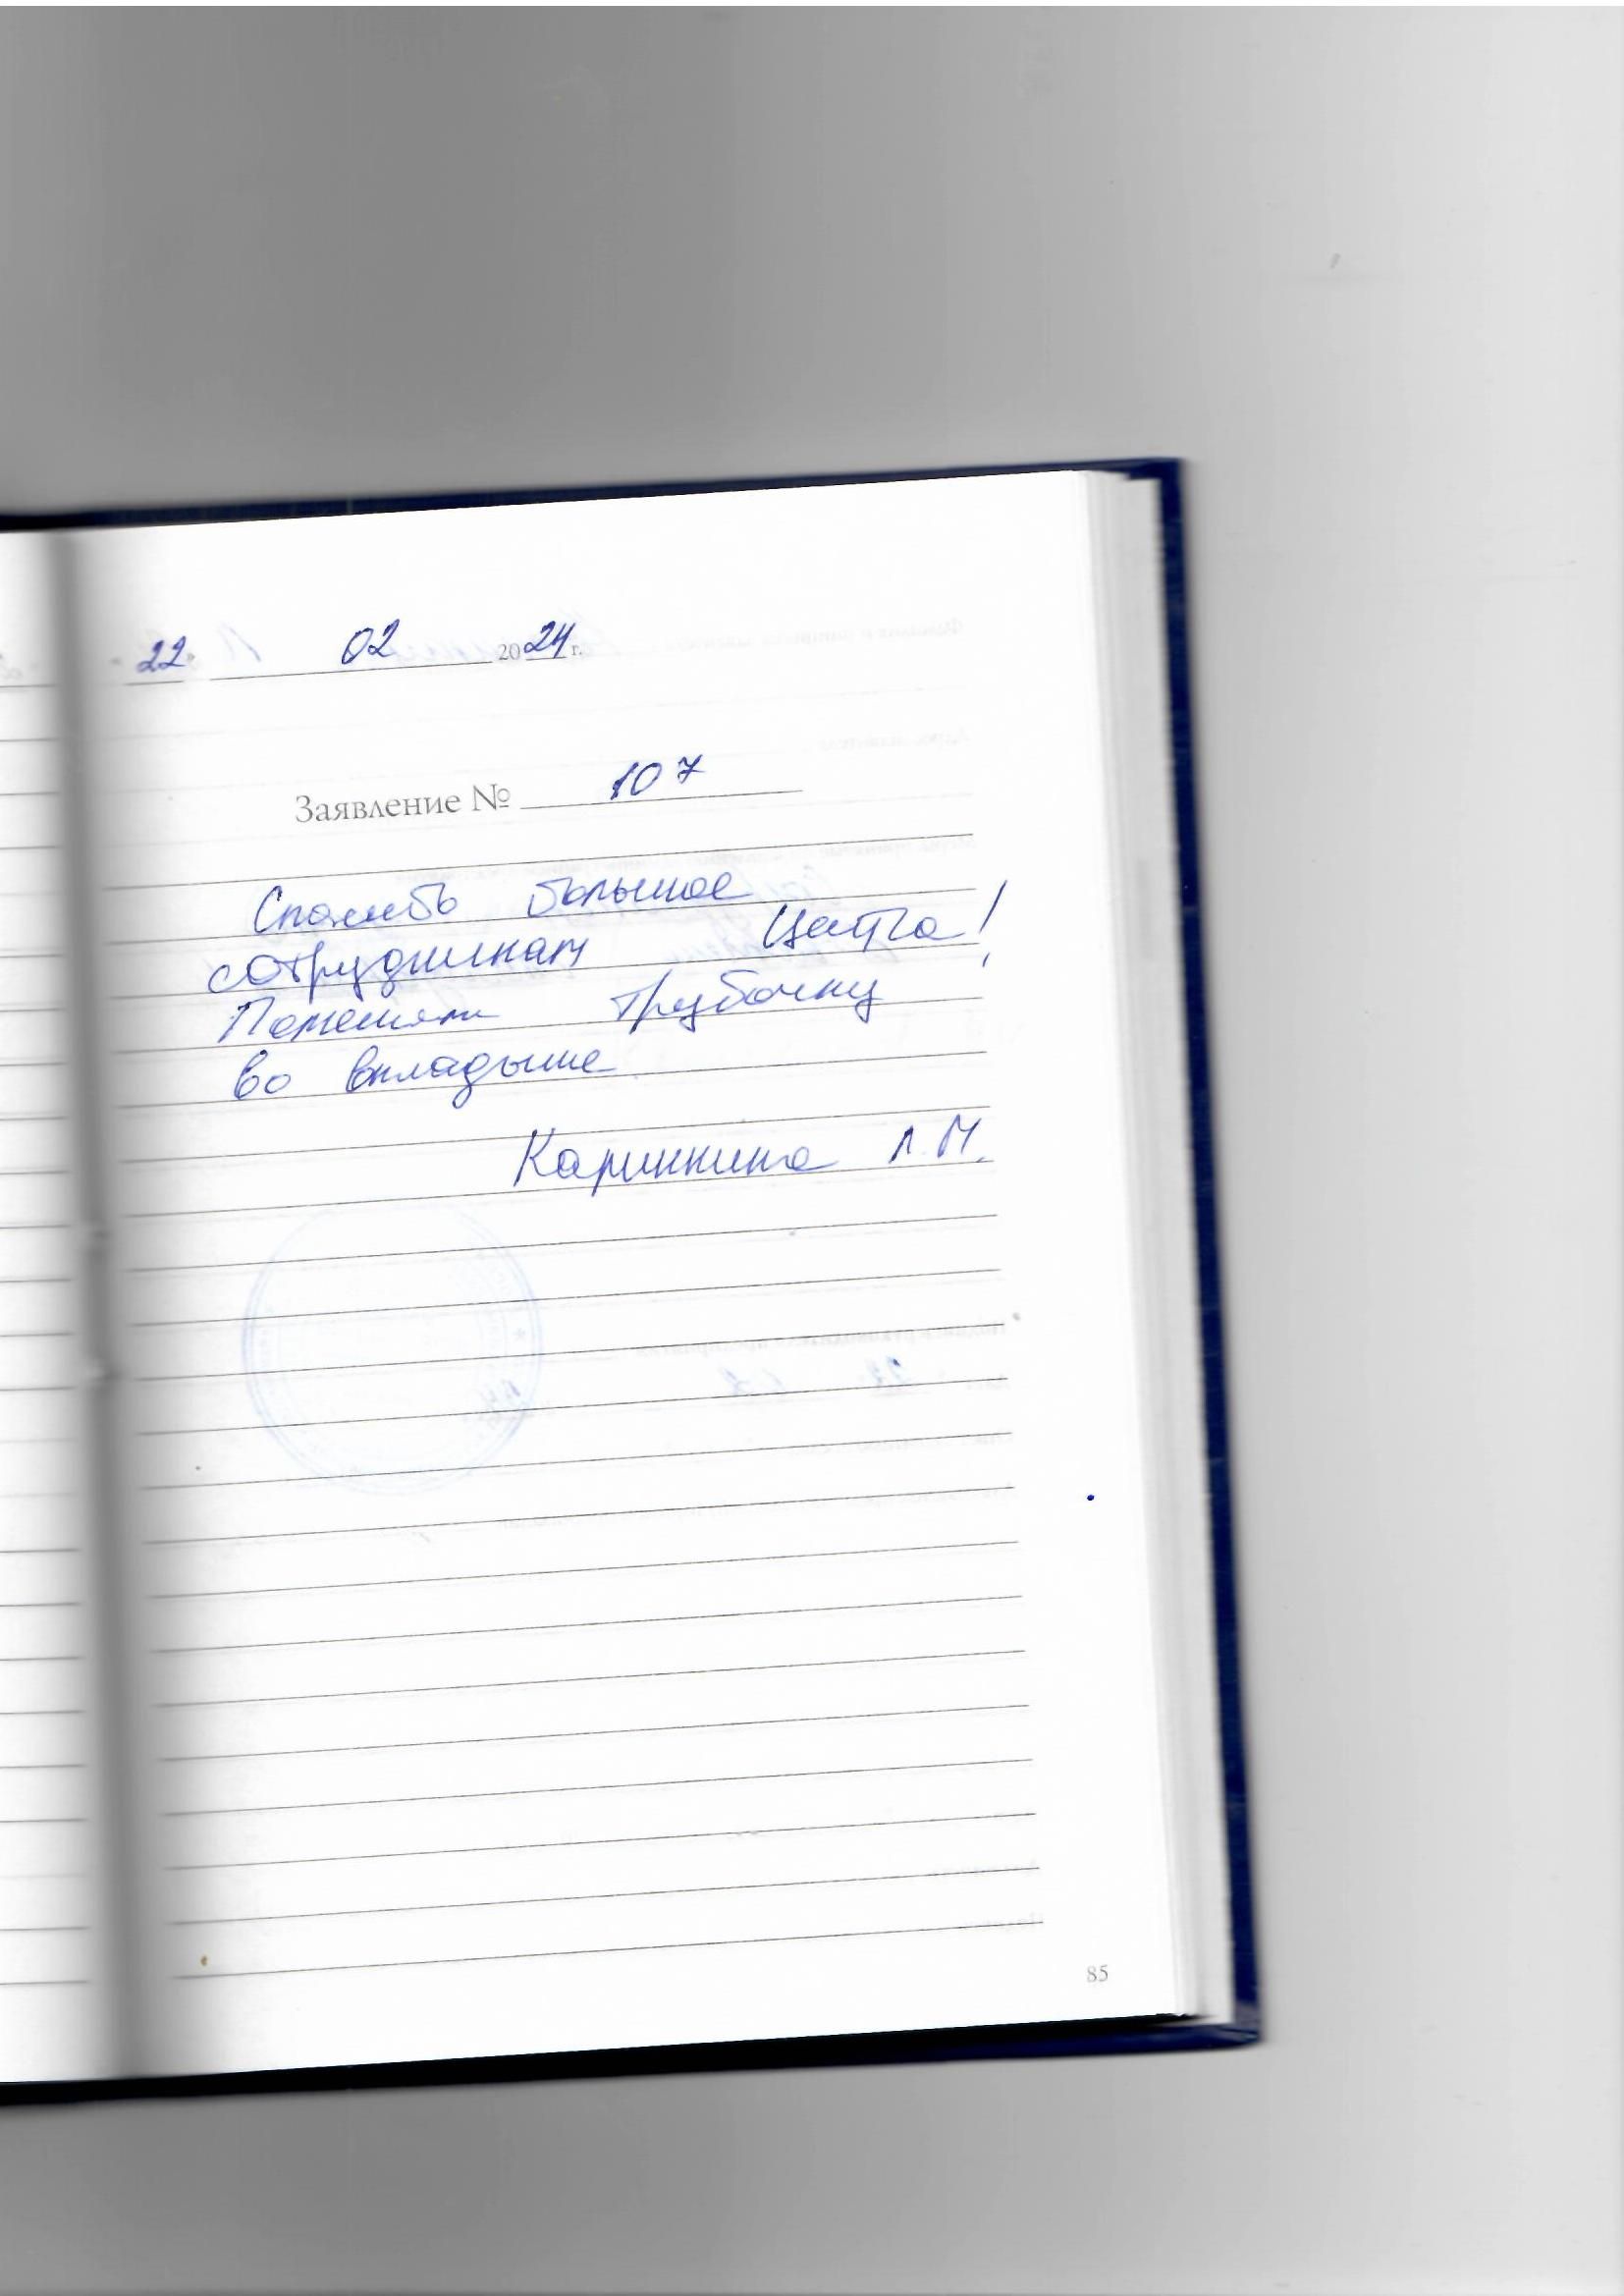 22» 02 2024 г.
Заявление № 107
Спасибо большое
сотрудникам Центра!
Поменяли трубочку
во вкладыше
Калинкина Л.М.
85